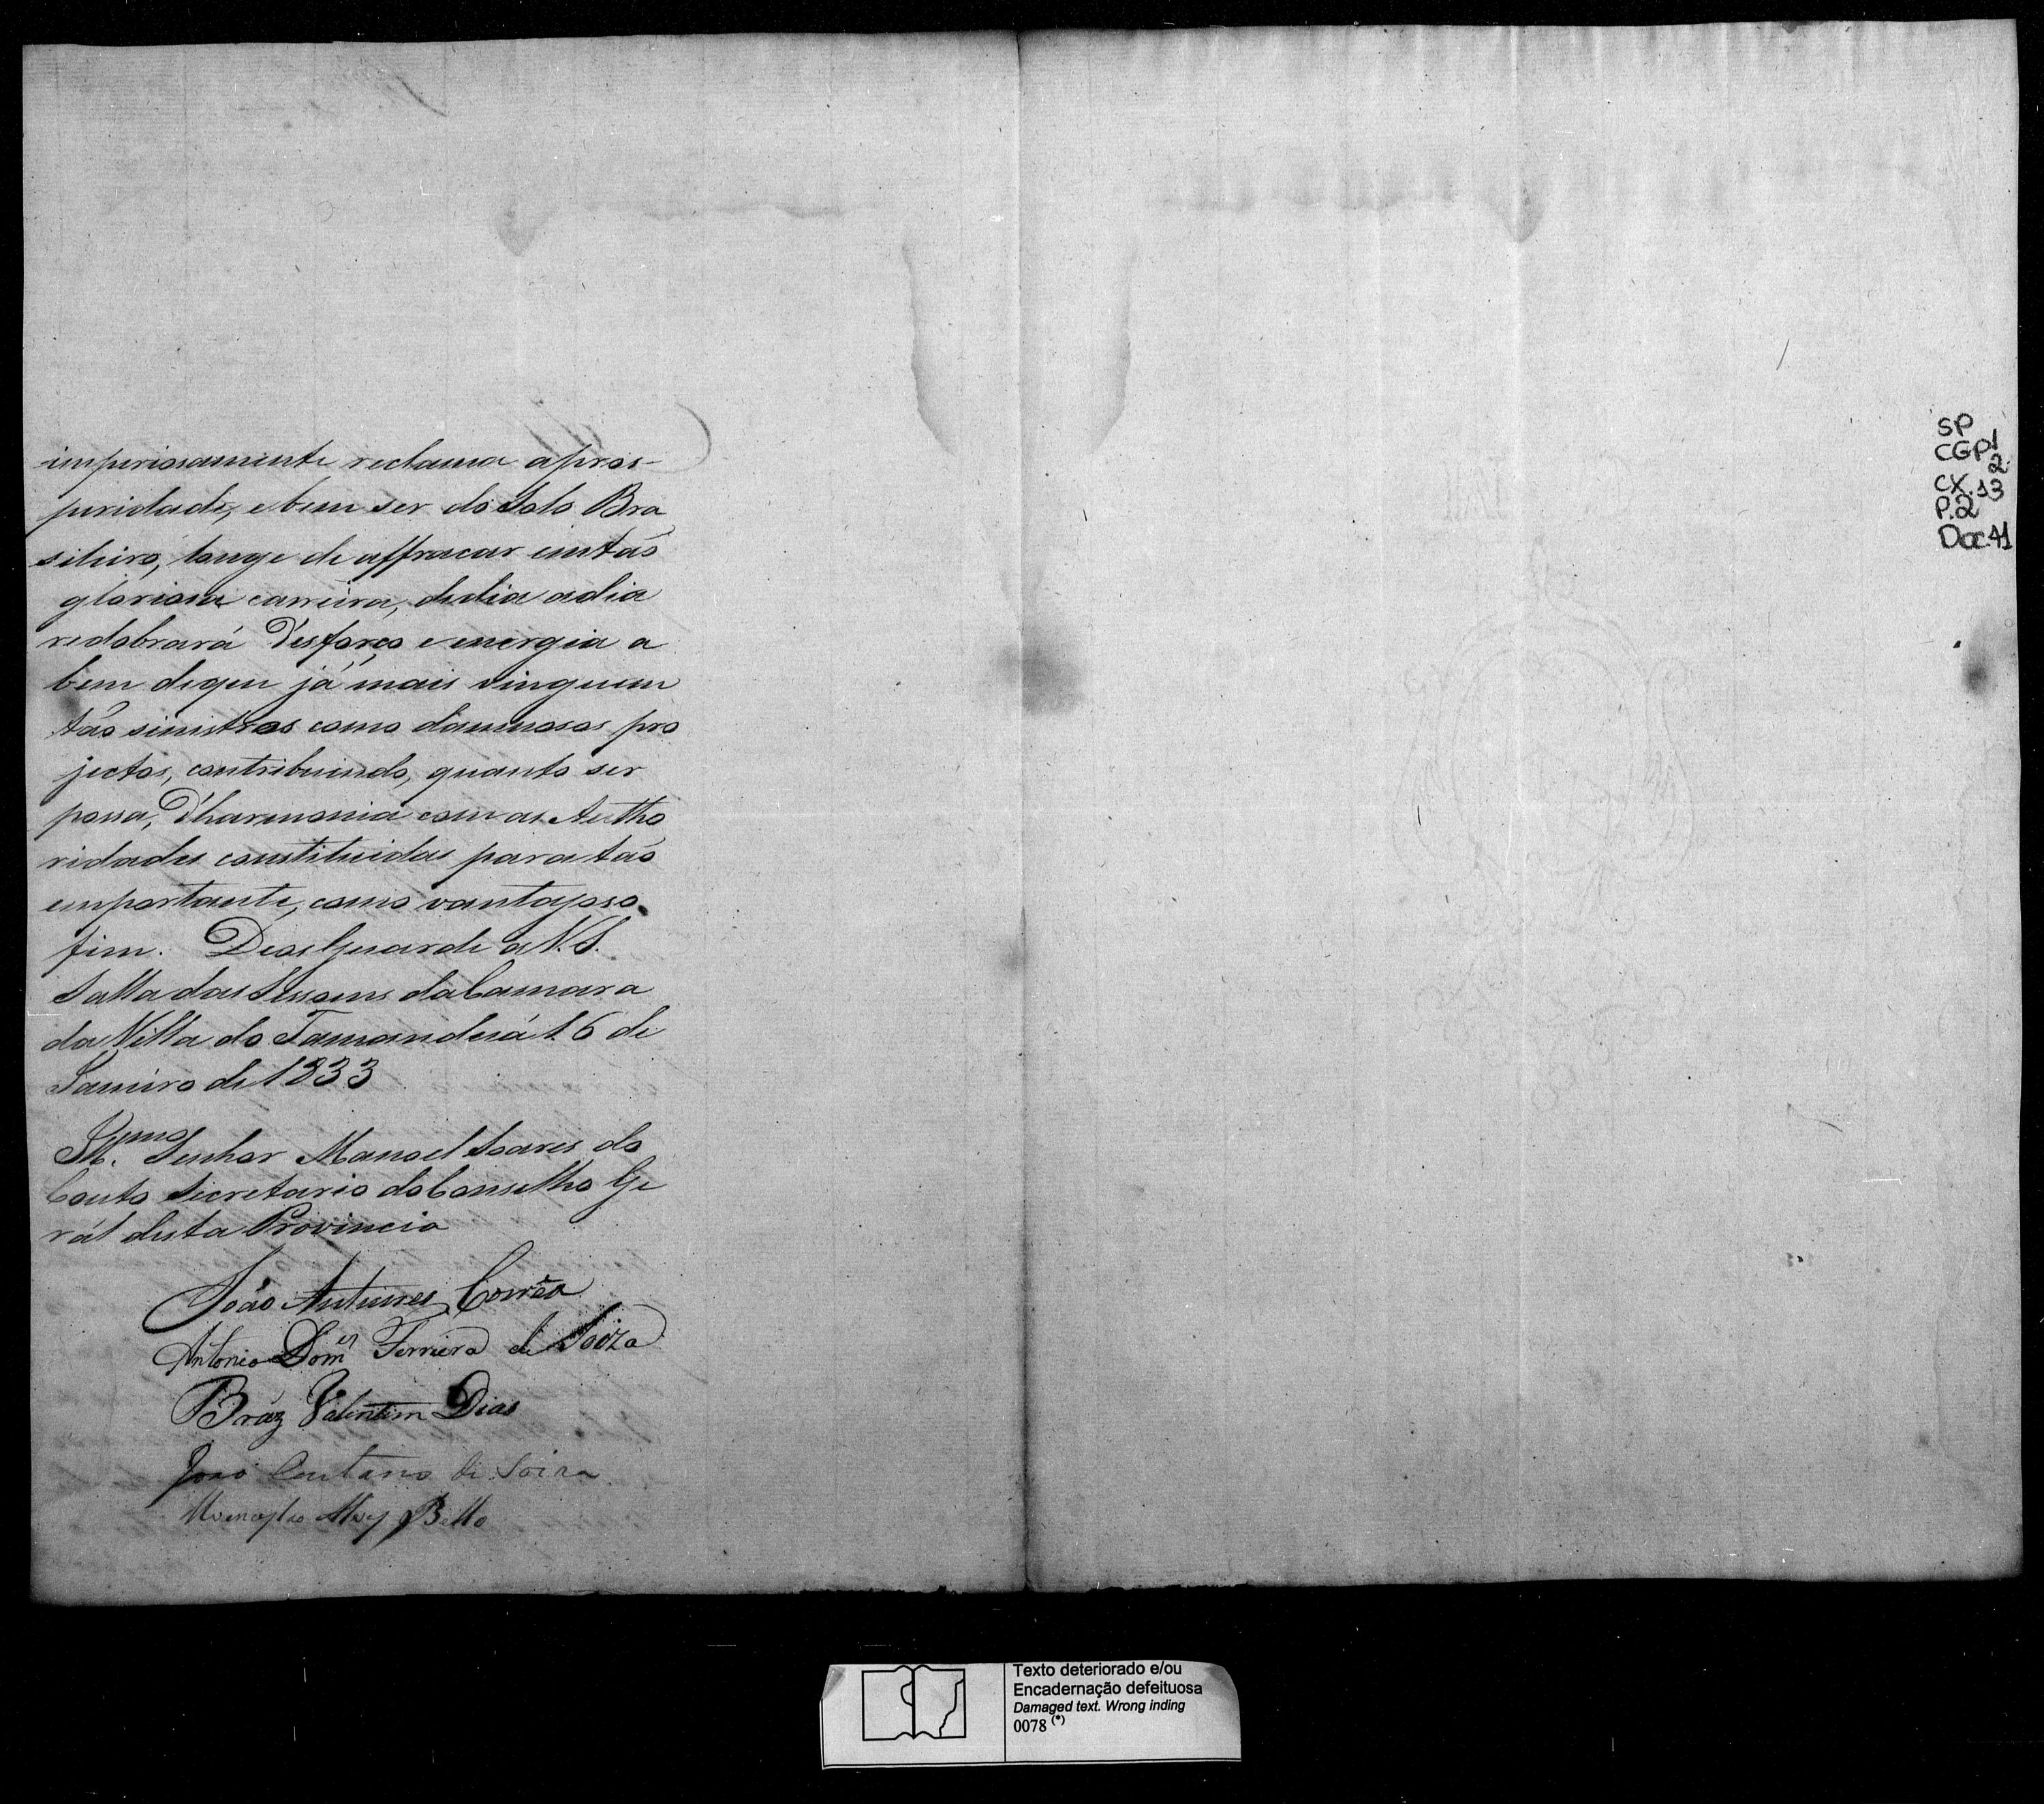 imperiosamente reclama apros-
peridade, ebem ser do Solo Bra
sileiro, longe de affracar emtão
gloriosa carreira, dedia adia
redobrará d'esforço e energia a
bem deque já mais vinguem
tão sinistros como damnosos pro
jectos, contribuindo, quanto ser
possa, d'harmonia com as Autho
ridades constituidas para tão
emportante, como vantajoso
fim. Deos Guarde a V.S.
Salla das Sessoens da Camara
da Villa do Tamanduá 16 de
Janeiro de 1833
Illmo. Senhor Manoel Soares do
Couto Secretario do Conselho Ge
rál desta Provincia
João Antunes Corrêa
Antonio Domes Ferreira de Souza
Bráz Valentim Dias
João de Soiza
Alves Bello
SP
CGP1
2
CX.13
P.2
Doc.41
Texto deteriorado e/ou
Encadernação defeituosa
Damaged text. Wrong inding
0078 (*)